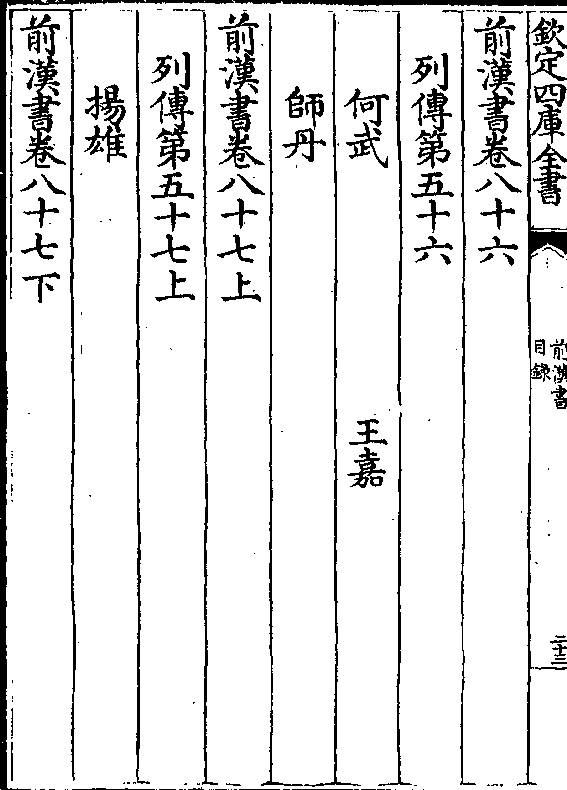 欽定四庫全書
前漢書
目録
二十三
前漢書卷八十六
列傳第五十六
何武 王嘉
師丹
前漢書卷八十七上
列傳第五十七上
揚雄
前漢書卷八十七下